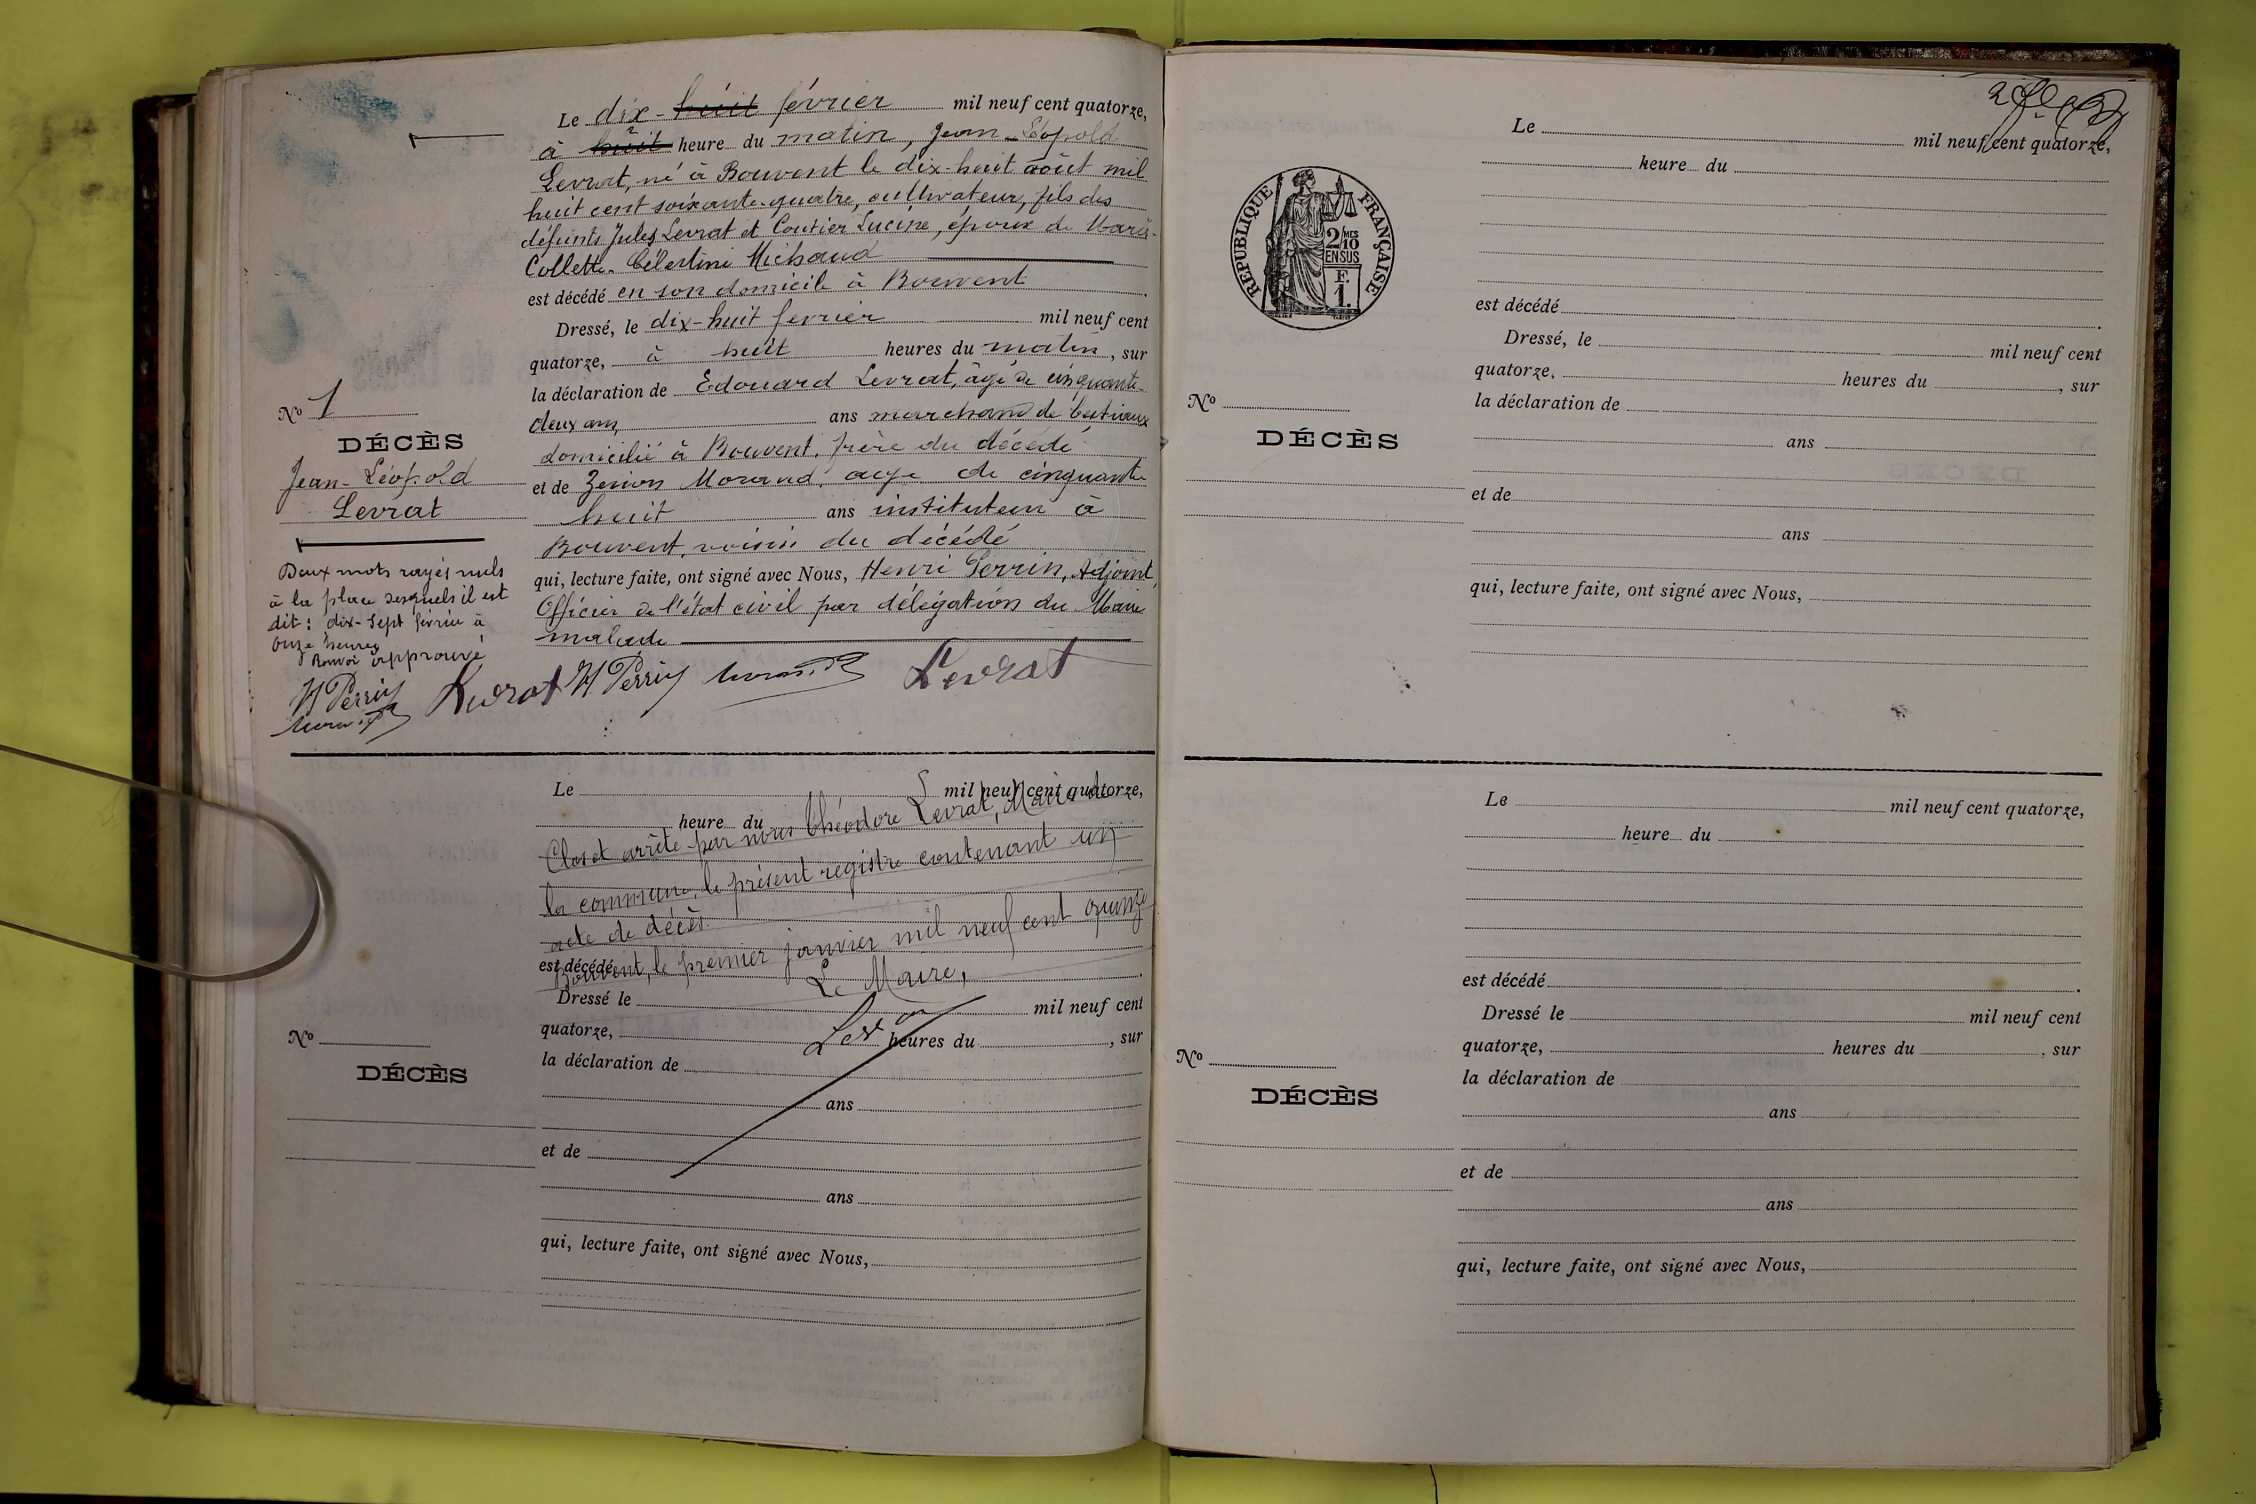 Le dix-huit février mil neuf cent quatorze,
à huit heure du matin, Jean-Léopold
Levrat, né à Bouvent le dix-huit août mil
huit cent soixante-quatre, cultivateur, fils des
défunts Jules Levrat et Coutier Lucine, époux de Marie-
Collette-Célestine Michaud
est décédé en son domicile à Bouvent
Dressé, le dix-huit fevrier mil neuf cent
quatorze, à huit heures du matin, sur
la déclaration de Edouard Levrat, âgé de cinquante-
deux ans, ans marchand de bestiaux
domicilié à Bouvent, frère du décédé
et de Zénon Morand, age de cinquante
huit ans instituteur à
Bouvent, voisin du décédé
qui, lecture faite, ont signé avec Nous, Henri Perrin, Adjoint,
Officier de l'état civil par délégation du Maire
malade
No 1
DÉCÈS
Jean-Léopold
Levrat
Deux mots rayés nuls
à la place desquels il est
dit: dix-sept février à
onze heures
Renvoi approuvé
H Perrin
Levrat H Perrin Levrat
Le mil neuf cent quatorze,
heure du
Clos et arrêté par nous Théodore Levrat, Maire de
la commune, le présent registre contenant un
acte de décès.
est décédé
Bouvent, le premier janvier mil neuf cent quinze
Le Maire,
Dressé le mil neuf cent
quatorze, heures du , sur
la déclaration de
ans
et de
ans
qui, lecture faite, ont signé avec Nous,
No
DÉCÈS
Le mil neuf cent quatorze,
heure du
RÉPUBLIQUE FRANÇAISE
2/10
MES
EN SUS
F.
1.
est décédé
Dressé, le mil neuf cent
quatorze, heures du , sur
la déclaration de
ans
et de
ans
qui, lecture faite, ont signé avec Nous,
No
DÉCÈS
Le mil neuf cent quatorze,
heure du
est décédé
Dressé le mil neuf cent
quatorze, heures du , sur
la déclaration de
ans
et de
ans
qui, lecture faite, ont signé avec Nous,
No
DÉCÈS